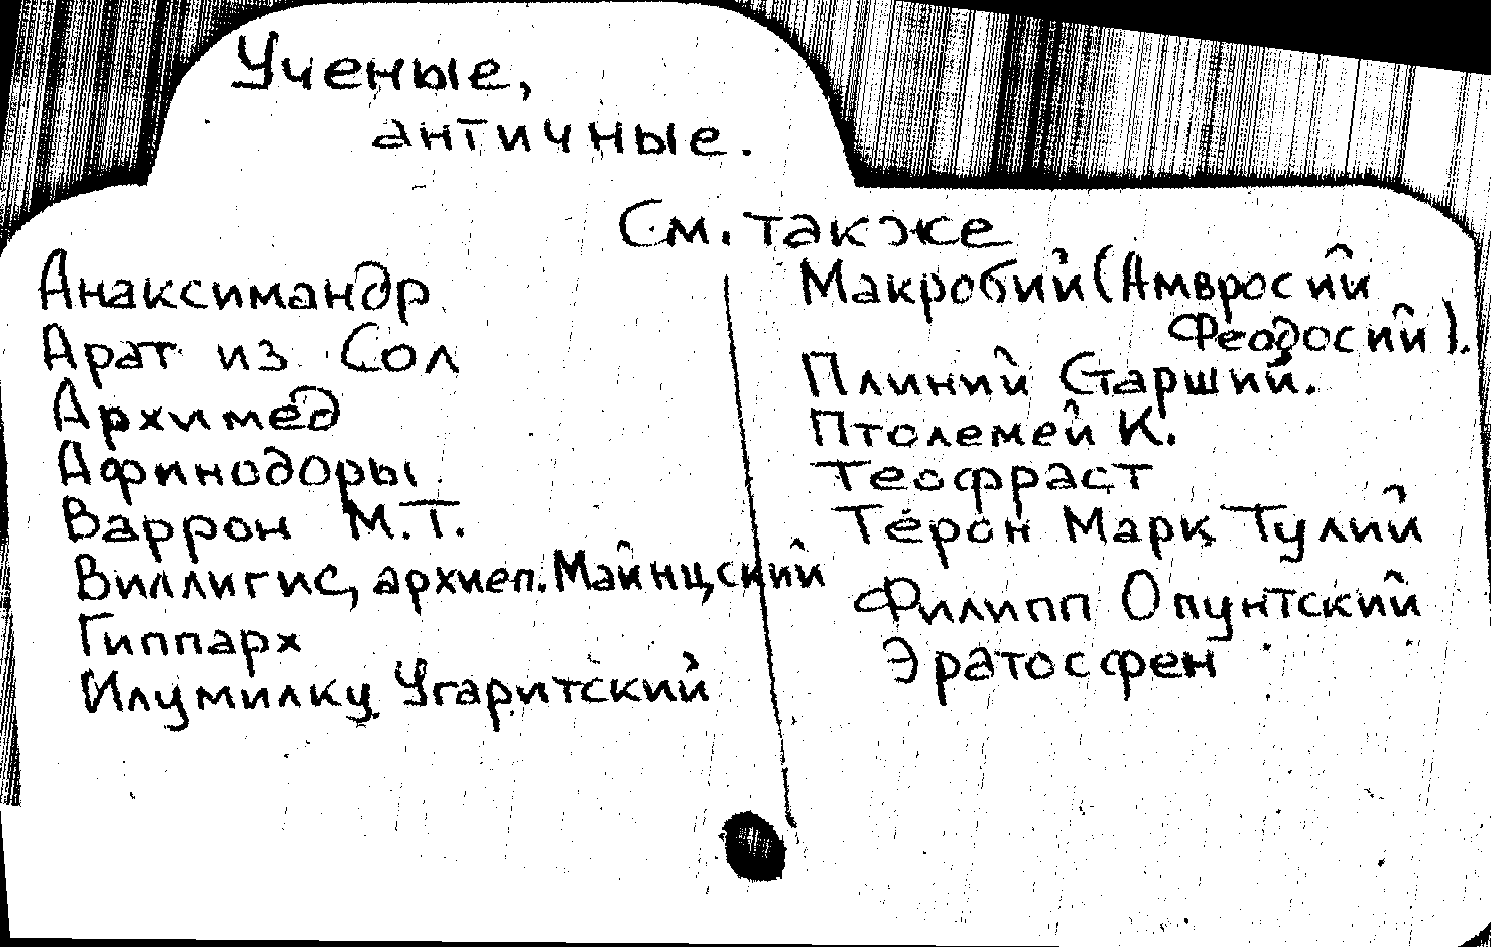 Ученые,
античные.
См. также
Анаксимандр
Арат из Сол
Архимед
Афинодоры
Варрон М.Т.
Виллигис, архиеп. Майнцский
Гиппарх
Илумилку Угаритский
Макробий (Амвросий
Феодосий).
Плиний Старший.
Птолемей К.
Теофраст
Терон Марк Тулий
Филипп Опунтский
Эратосфен